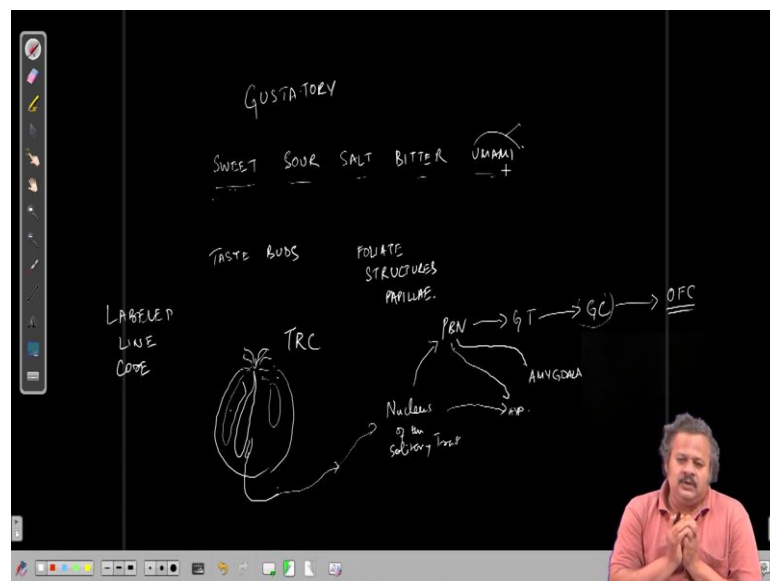 GUSTATORY
SWEET SOUR SALT BITTER UMAMI
+
TASTE BUDS
FOLIATE
STRUCTURES
PAPILLAE.
LABELED
LINE
CODE
TRC
PBN → GT → GC → OFC
AMYGDALA
Nucleus
of the
Solitary Tract